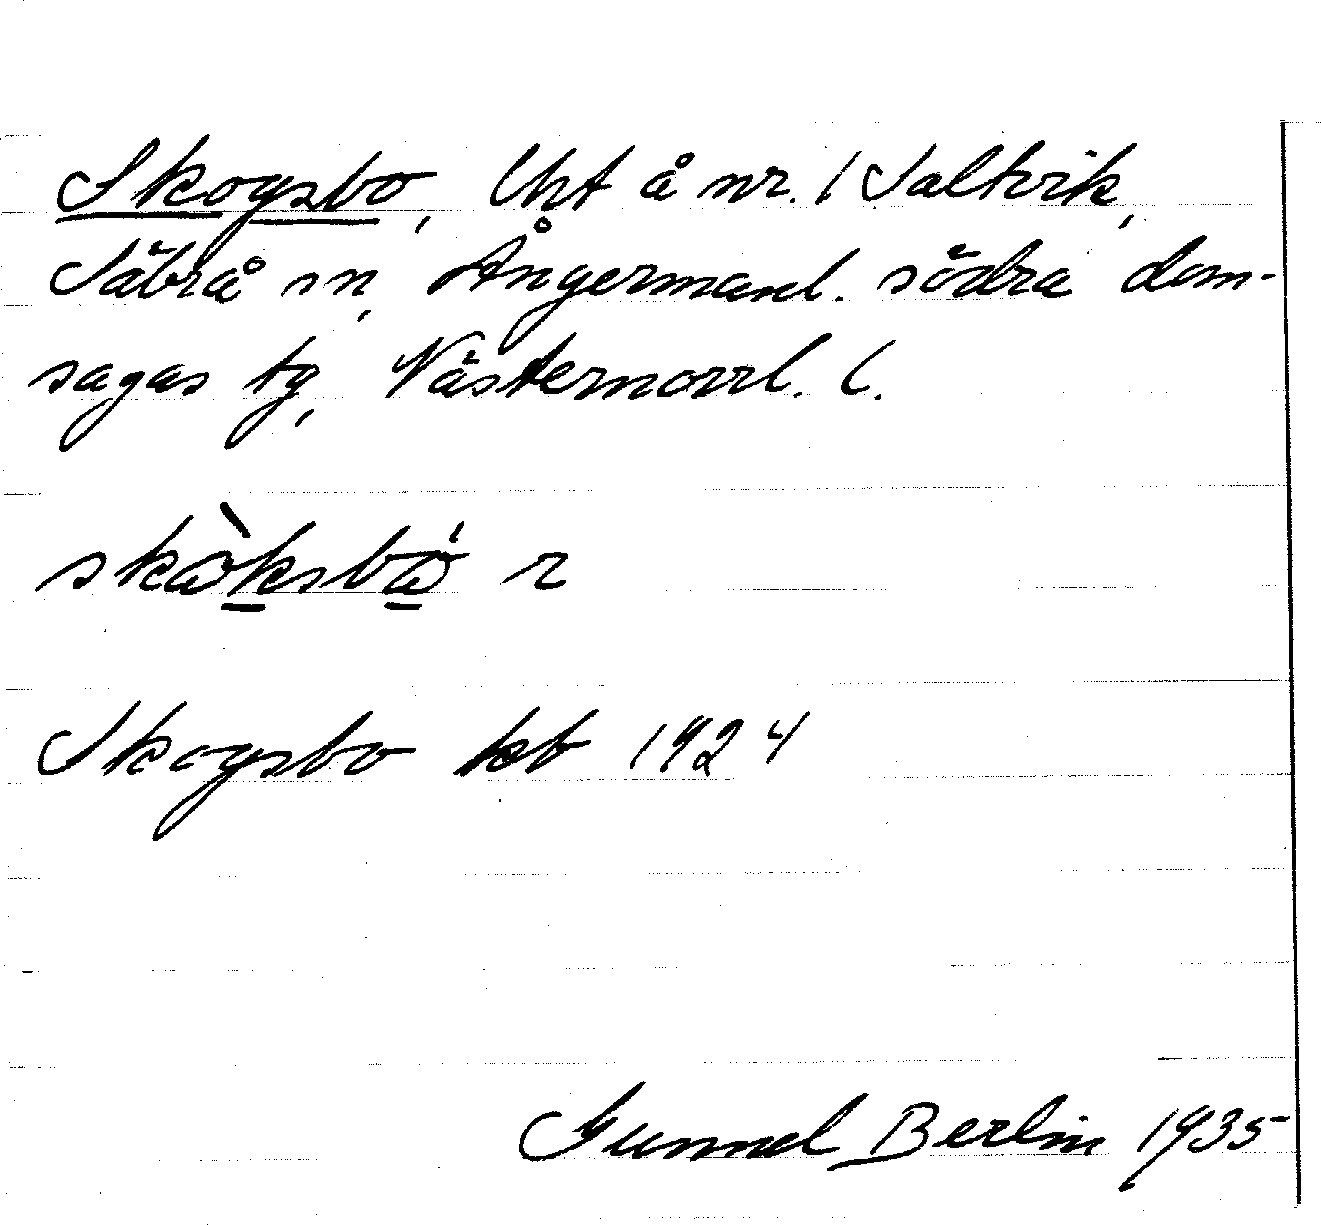 Skogsbo, lht å nr. 1 Saltvik,
Säbrå sn, Ångermanl. södra dom-
sagas tg, Västernorrl. l.
skòksbó r
Skogsbo kb 1924
Gunnel Berlin 1935